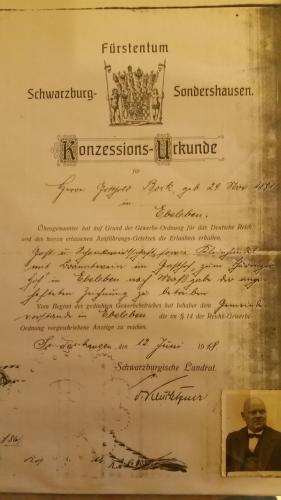 Fürstentum
Schwarzburg- Sondershausen.
Konzessions-Urkunde
für
Herrn Gotthold Bock geb. 29 Nov.
in
Ebeleben.
Obengenannter hat auf Grund der Gewerbe-Ordnung für das Deutsche Reich
und des hierzu erlassenen Ausführungs-Gesetzes die Erlaubnis erhalten,
Gast- u. Schankwirtschaft, sowie Kleinhandel
mit Branntwein im Gasthof „zum Thüringer
Hof" in Ebeleben nach Maßgabe der ange-
hefteten Zeichnung zu betreiben
Vom Beginn des gedachten Gewerbebetriebes hat Inhaber dem Gemeinde-
vorstande in Ebeleben die im § 14 der Reichs-Gewerbe-
Ordnung vorgeschriebene Anzeige zu machen.
Sondershausen, den 12 Juni 1918.
Schwarzburgische Landrat.